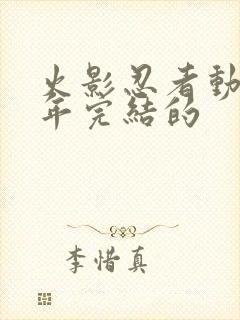 火影忍者動
年完結的
李惜真